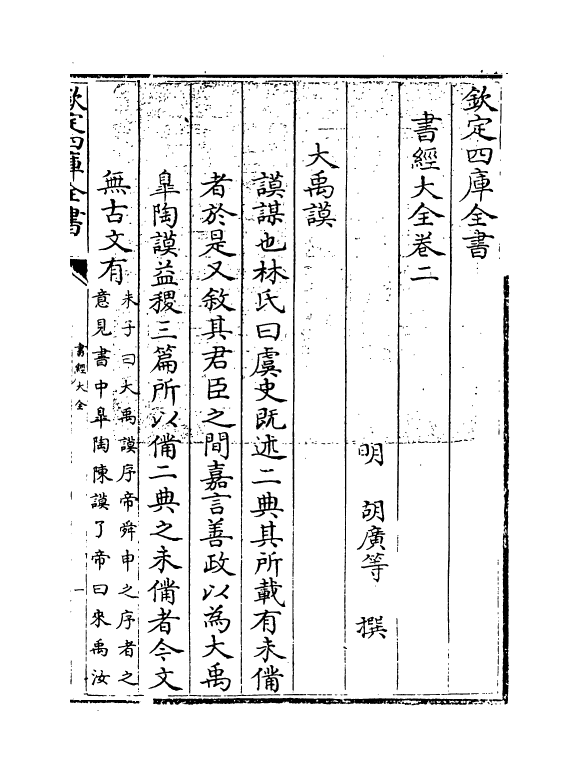 欽定四庫全書
書經大全卷二
明 胡廣等 撰
大禹謨
謨謀也林氏曰虞史既述二典其所載有未備
者於是又敘其君臣之間嘉言善政以為大禹
臯陶謨益稷三篇所以備二典之未備者今文
無古文有
朱子曰大禹謨序帝舜申之序者之
意見書中臯陶陳謨了帝曰來禹汝
欽定四庫全書
書經大全
一